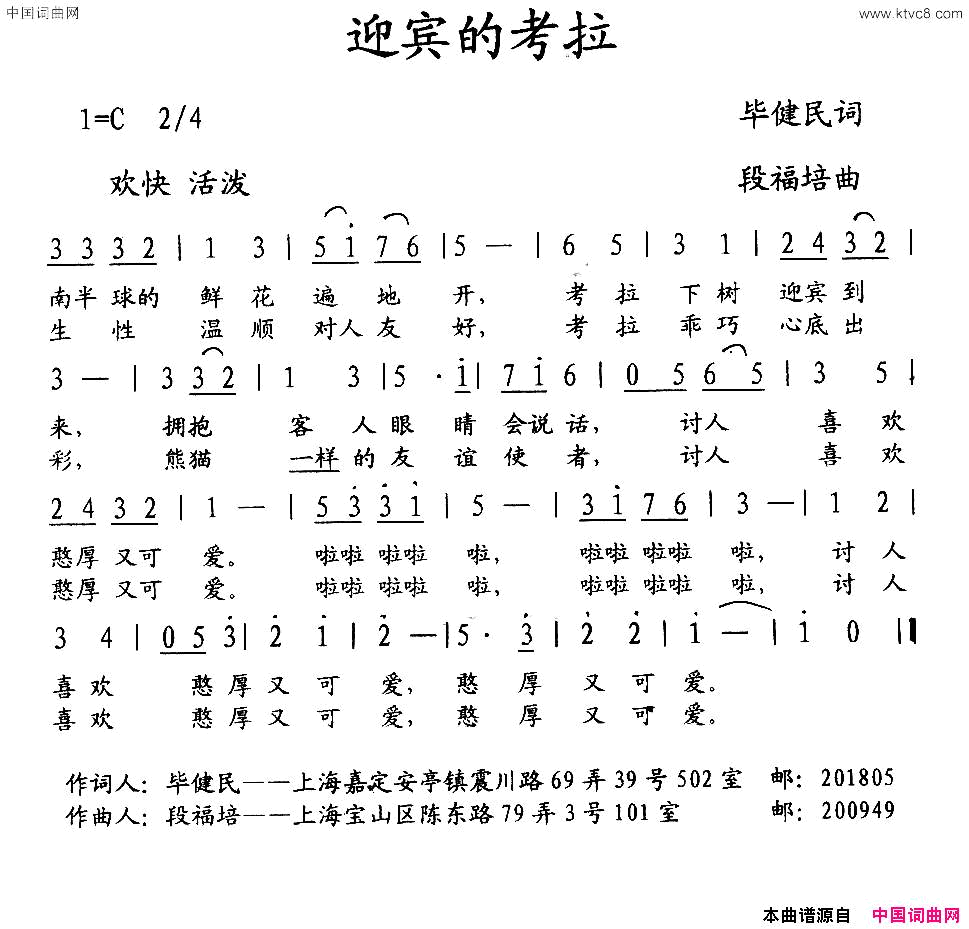 中国词曲网 www.ktvc8.com
迎宾的考拉
1=C 2/4 毕健民词
欢快 活泼 段福培曲
3 3 3 2 | 1 3 | 5 i 7 6 | 5 — | 6 5 | 3 1 | 2 4 3 2 |
南半 球的 鲜 花 遍 地 开， 考 拉 下 树 迎宾到
生 性 温 顺 对人 友 好， 考 拉 乖 巧 心底 出
3 — | 3 3 2 | 1 3 | 5 · i | 7 i 6 | 0 5 6 5 | 3 5 |
来， 拥抱 客 人 眼 睛 会说 话， 讨人 喜 欢
彩， 熊猫 一样 的 友 谊 使 者， 讨人 喜 欢
2 4 3 2 | 1 — | 5 3 3 i | 5 — | 3 i 7 6 | 3 — | 1 2 |
憨厚 又可 爱。 啦啦 啦啦 啦， 啦啦 啦啦 啦， 讨 人
憨厚 又可 爱。 啦啦 啦啦 啦， 啦啦 啦啦 啦， 讨 人
3 4 | 0 5 3 | 2 i | 2 — | 5 · 3 | 2 2 | i — | i 0 ‖
喜 欢 憨 厚 又 可 爱， 憨 厚 又 可 爱。
喜 欢 憨 厚 又 可 爱， 憨 厚 又 可 爱。
作词人：毕健民——上海嘉定安亭镇震川路 69 弄 39 号 502 室 邮：201805
作曲人：段福培——上海宝山区陈东路 79 弄 3 号 101 室 邮：200949
本曲谱源自 中国词曲网